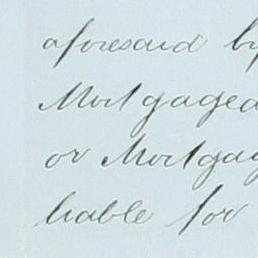 aforesaid by
Mortgaged
or Mortgag
liable for